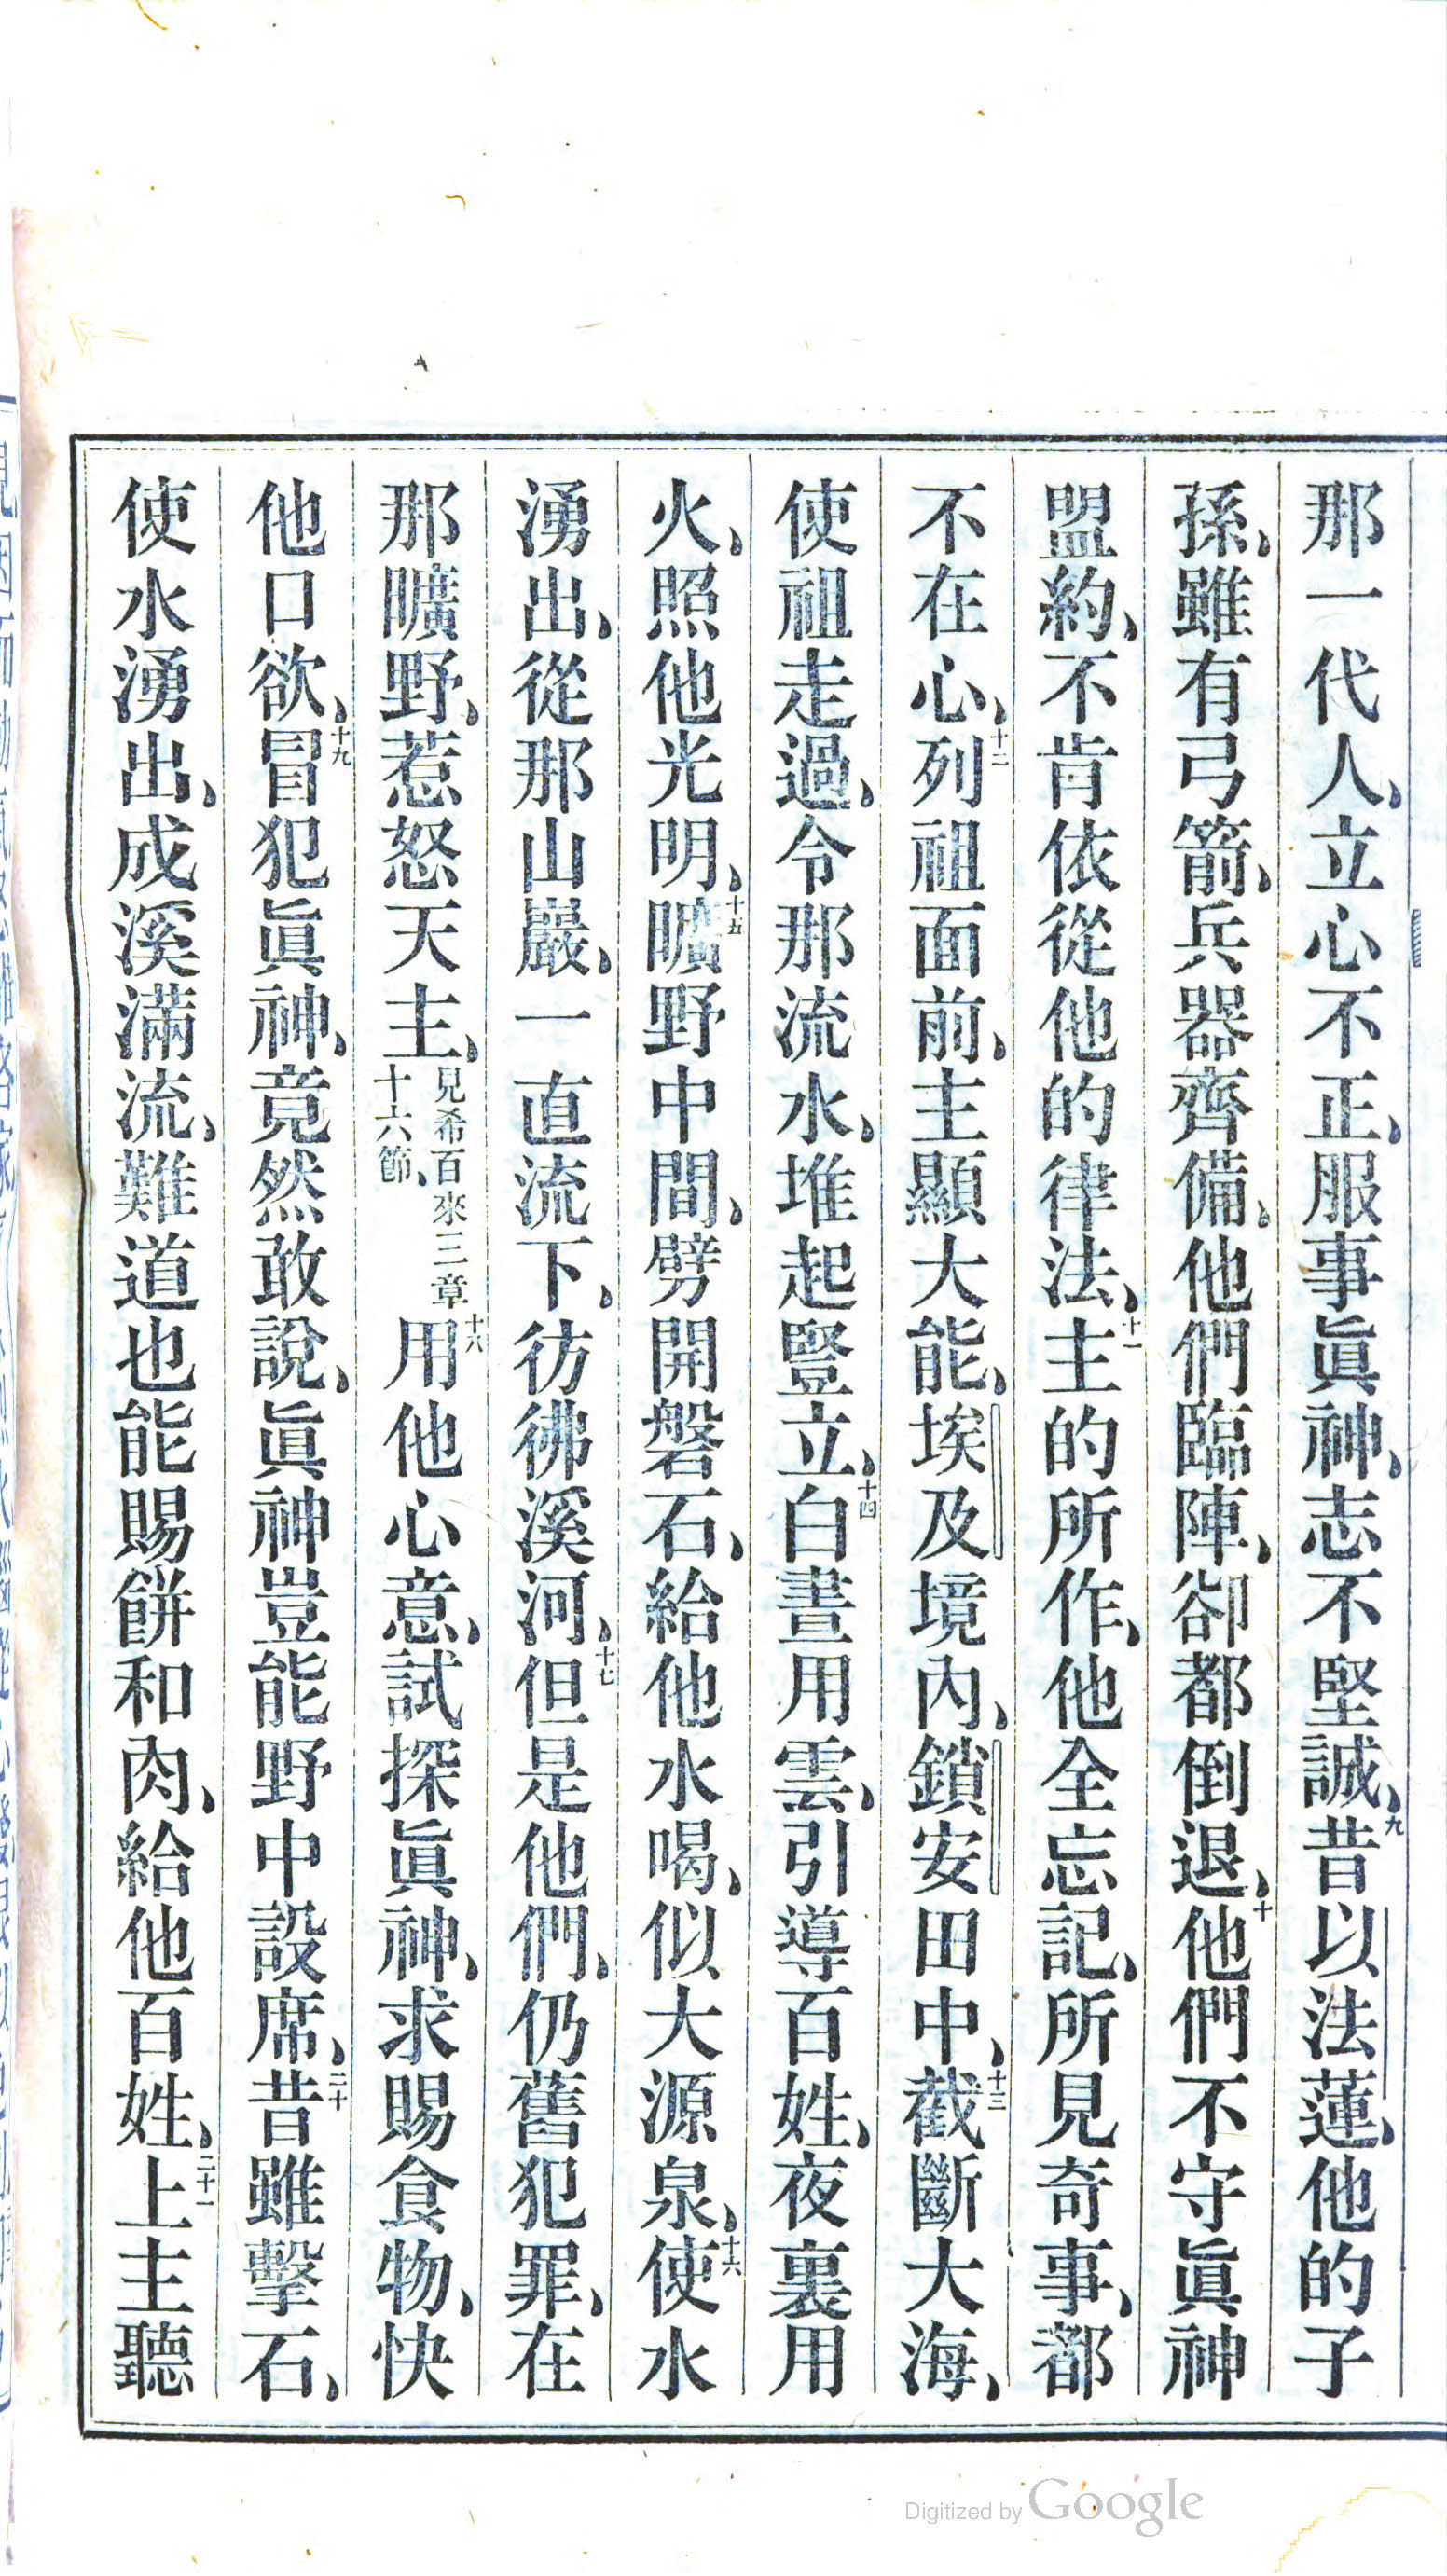 那一代人、立心不正、服事眞神、志不堅誠、九昔以法蓮、他的子
孫、雖有弓箭、兵器齊備、他們臨陣、卻都倒退、十他們不守眞神
盟約、不肯依從他的律法、十一主的所作、他全忘記、所見奇事、都
不在心、十二列祖面前、主顯大能、埃及境內、鎖安田中、十三截斷大海、
使祖走過、令那流水、堆起豎立、十四白晝用雲、引導百姓、夜裏用
火、照他光明、十五曠野中間、劈開磐石、給他水喝、似大源泉、十六使水
湧出、從那山巖、一直流下、彷彿溪河、十七但是他們、仍舊犯罪、在
那曠野、惹怒天主、見希百來三章十六節、十八用他心意、試探眞神、求賜食物、快
他口欲、十九冒犯眞神、竟然敢說、眞神豈能野中設席、二十昔雖擊石、
使水湧出、成溪滿流、難道也能賜餅和肉、給他百姓、二十一上主聽
Digitized by Google